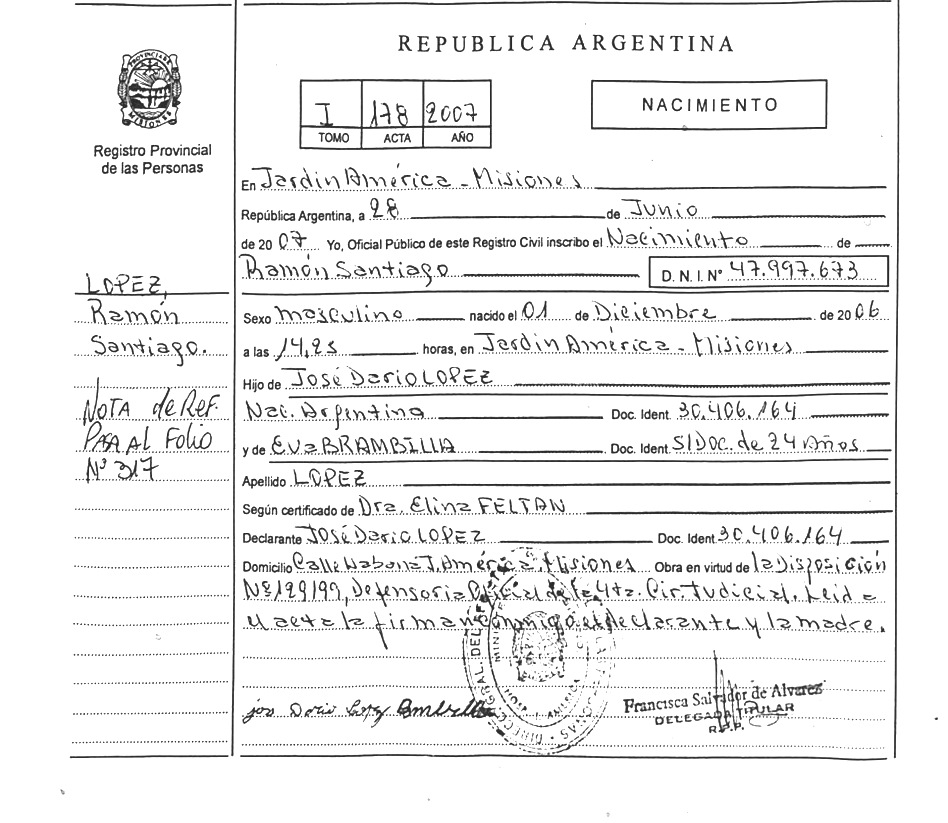 REPUBLICA ARGENTINA
PROVINCIA DE MISIONES
Registro Provincial
de las Personas
I 178 2007
TOMO ACTA AÑO
NACIMIENTO
En Jardin América - Misiones
República Argentina, a 28 de Junio
de 2007 Yo, Oficial Público de este Registro Civil inscribo el Nacimiento de
Ramón Santiago D.N.I. Nº 47.997.673
LOPEZ,
Ramón
Santiago.
NOTA de Ref.
PASA AL FOLIO
Nº 317
Sexo masculino nacido el 01 de Diciembre de 2006
a las 14,25 horas, en Jardin América - Misiones
Hijo de José Dario LOPEZ
Nac. Argentino Doc. Ident. 30.406.164
y de Eva BRAMBILLA Doc. Ident. S/DOC. de 24 Años
Apellido LOPEZ
Según certificado de Dra. Elina FELTAN
Declarante José Dario LOPEZ Doc. Ident 30.406.164
Domicilio Calle Wabona J. América - Misiones Obra en virtud de la Disposición
Nº 129/97, Defensoria Oficial de la 4ta. Cir. Judicial. Leida
el acta la firman conmigo el declarante y la madre.
jose Dario Lopez Brambilla
Francisca Salvador de Alvarez
DELEGADA TITULAR
R.P.P.